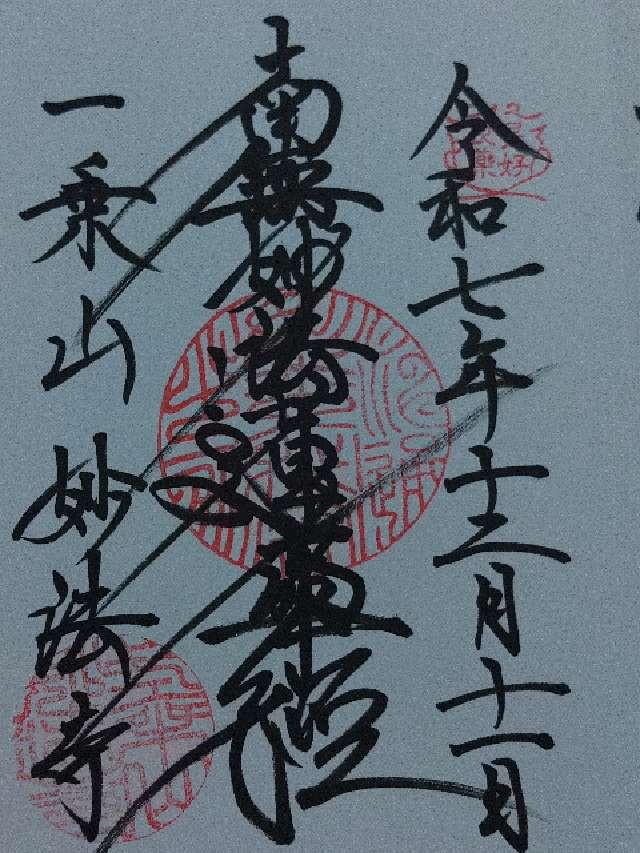 令和七年十二月十一日
南無妙法蓮華経
一乗山妙法寺